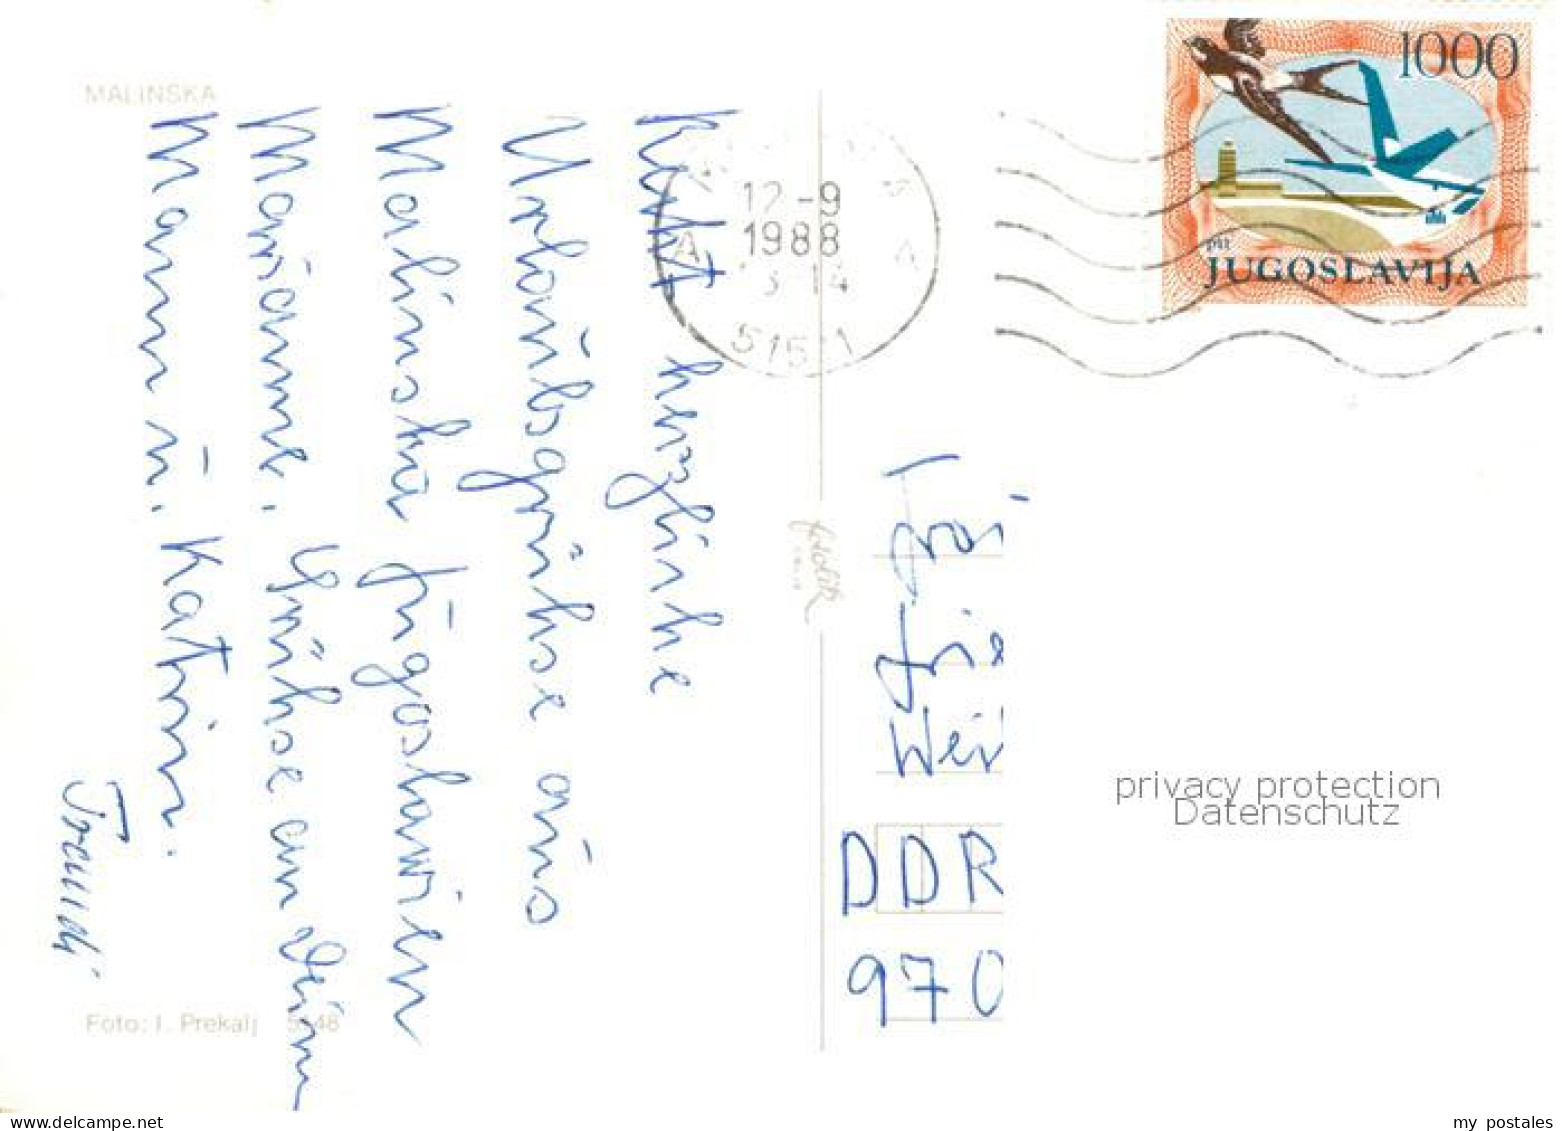 MALINSKA
Recht herzliche
Urlaubsgrüsse aus
Malinska Jugoslawien
Marianne. Grüsse an Deinen
Mann u. Katrin.
Traudi
Foto: I. Prekalj 5148
fotolik
12 -9
1988
5151
1000
ptt
JUGOSLAVIJA
Wei
DDR
970
privacy protection
Datenschutz
www.delcampe.net
my_postales